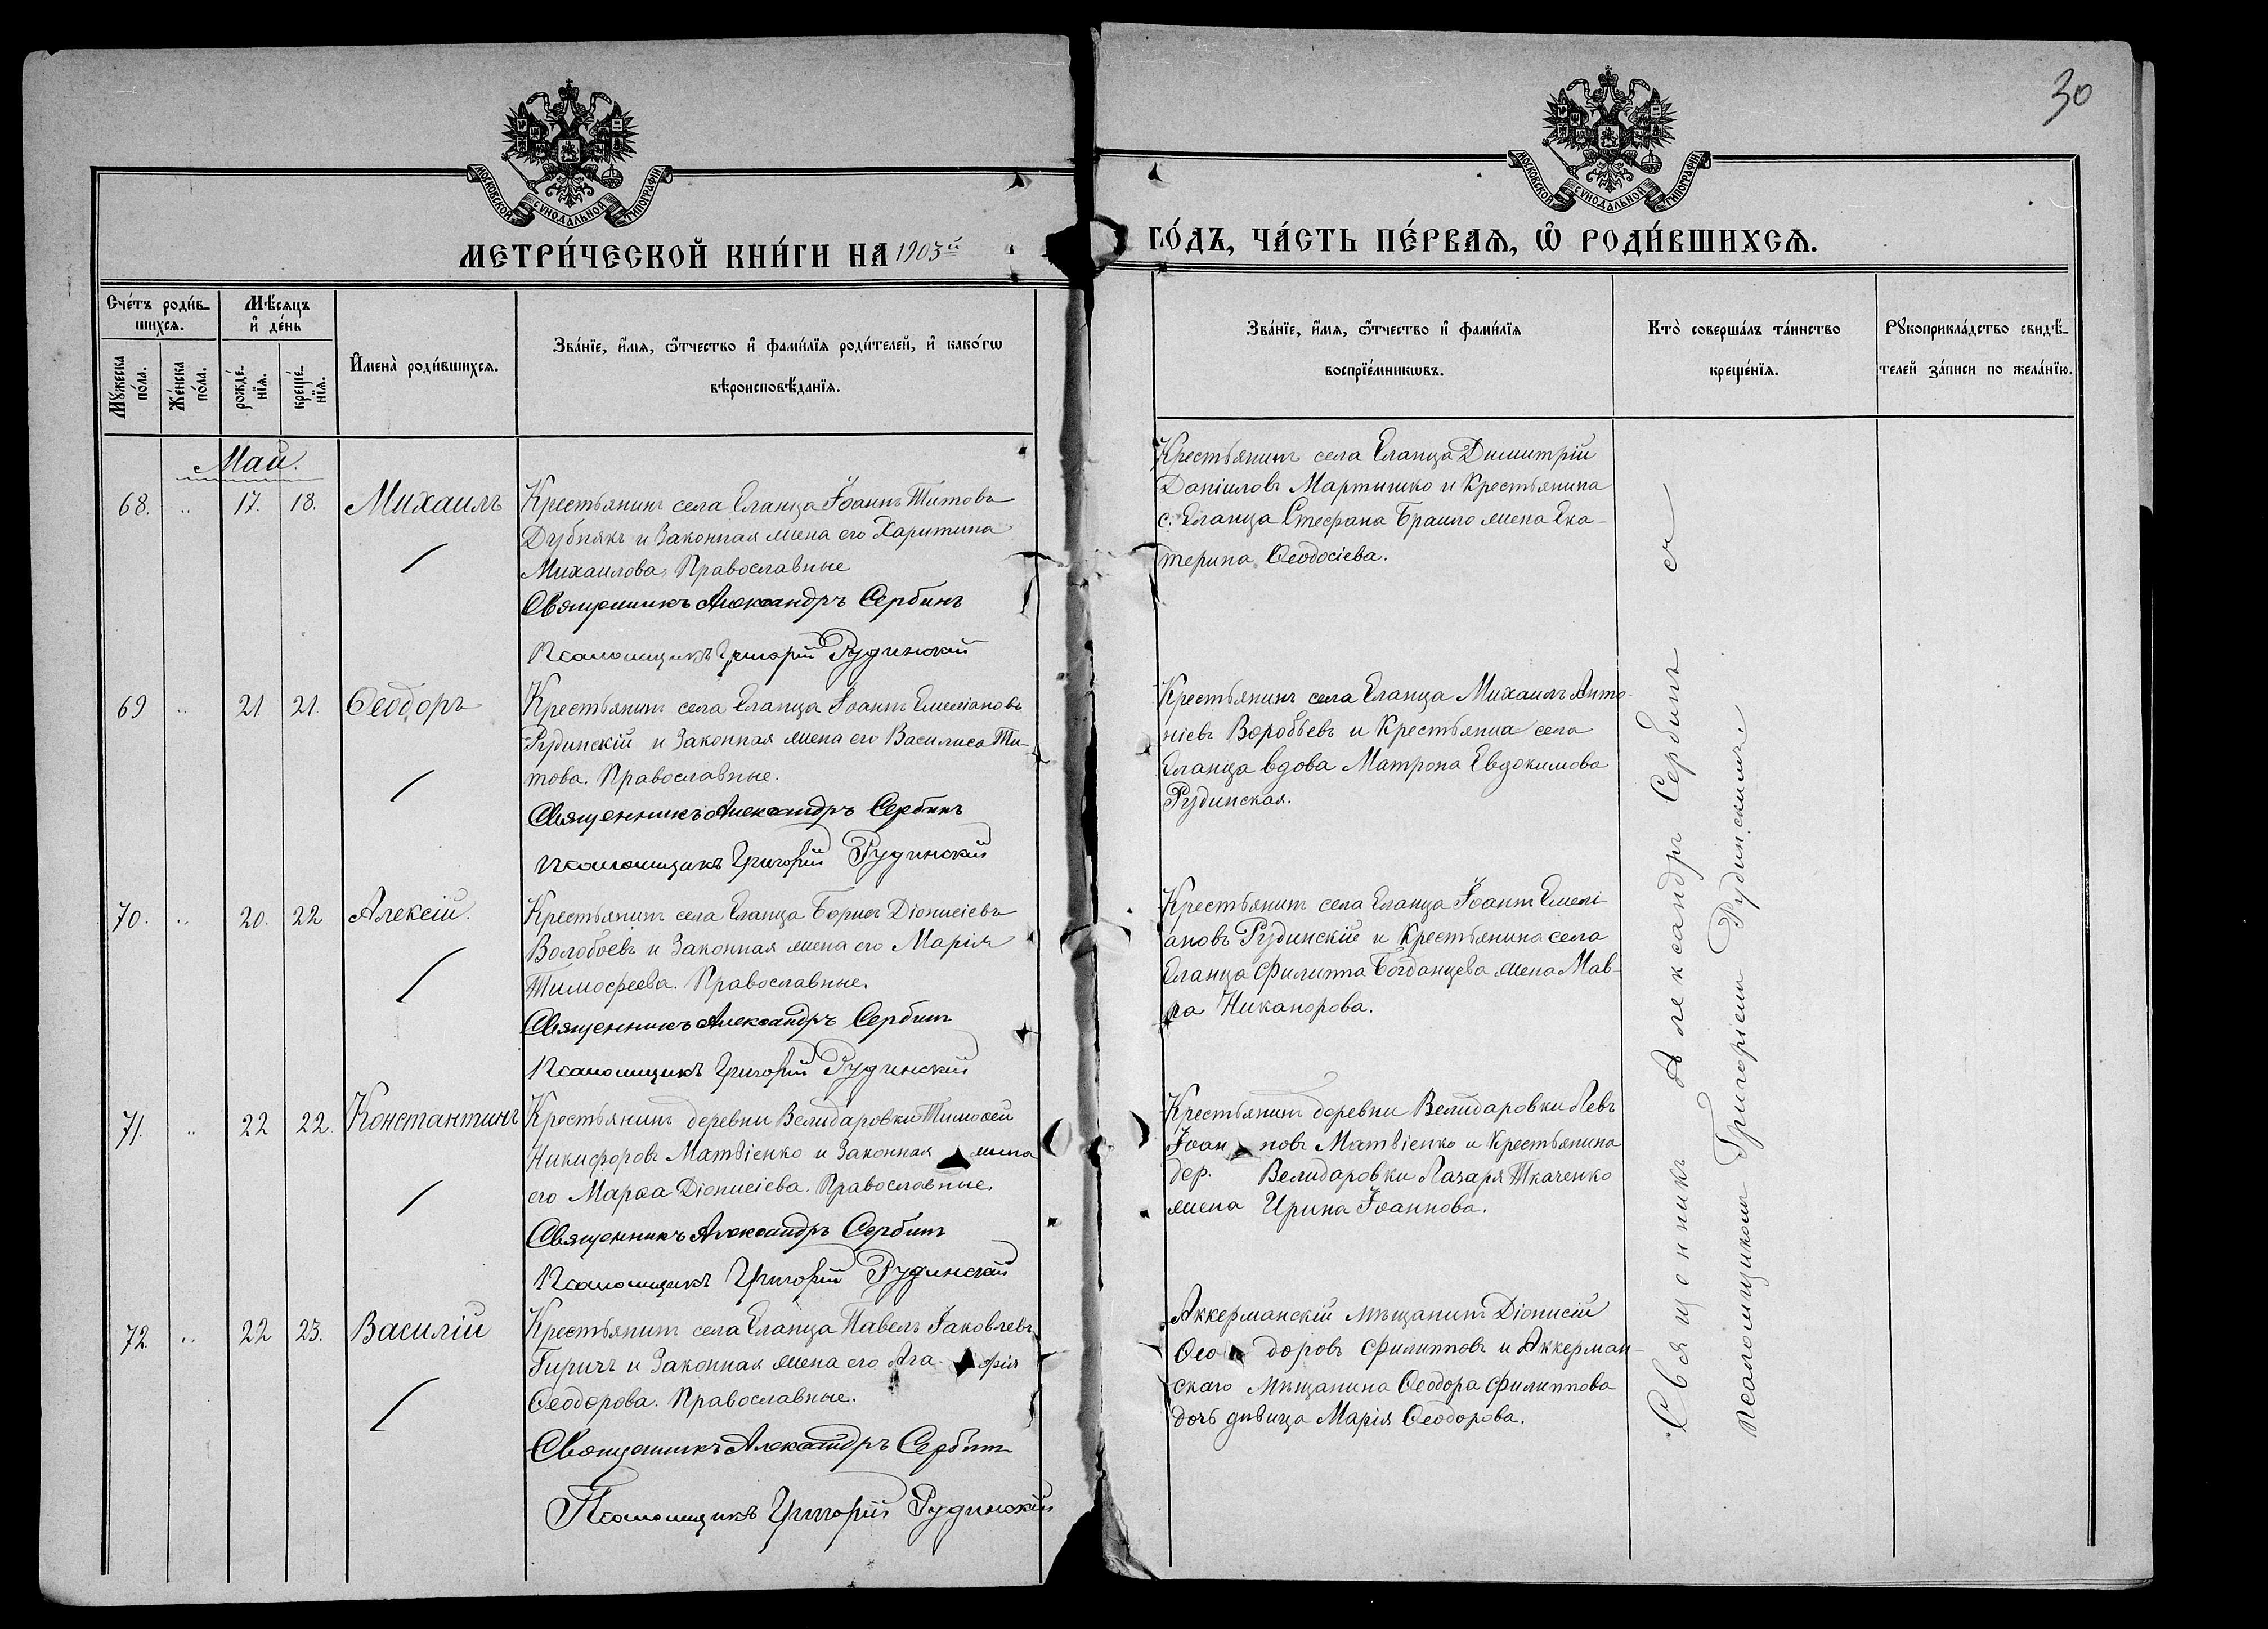 30
МОСКОВСКОЙ СѴНОДАЛЬНОЙ ТИПОГРАФІИ
МОСКОВСКОЙ СѴНОДАЛЬНОЙ ТИПОГРАФІИ
МЕТРИ́ЧЕСКОЙ КНИ́ГИ НА 1903й
ГО́ДЪ, ЧА́СТЬ ПЕ́РВАѦ, Ѽ РОДИ́ВШИХСѦ.
Сче́тъ роди́в-
шихсѧ.
Мꙋжеска
по́ла.
Же́нска
по́ла.
Мѣ́сѧцъ
и҆ де́нь
рожде́-
нїѧ.
креще́-
нїѧ.
И҆мена̀ роди́вшихсѧ.
Зва́нїе, и҆́мѧ, ѻ҆́тчество и҆ фами́лїѧ роди́телей, и҆ како́гѡ
вѣроисповѣ́данїѧ.
Зва́нїе, и҆́мѧ, ѻ҆́тчество и҆ фами́лїѧ
воспрїе́мникѡвъ.
Кто̀ соверша́лъ та́инство
креще́нїѧ.
Рꙋкоприкла́дство свидѣ́-
телей за́писи по жела́нїю.
Май.
68. „ 17. 18. Михаилъ
Крестьянинъ села Еланца Іоаннъ Титовъ
Дубнякъ и Законная жена его Харитина
Михаилова, Православные
Священникъ Александръ Сербинъ
Псаломщикъ Григорій Рудинскій
Крестьянинъ села Еланца Димитрій
Даніиловъ Мартышко и Крестьянина
с. Еланца Стефана Браило жена Ека-
терина Ѳеодосіева.
69 „ 21 21. Ѳеодоръ
Крестьянинъ села Еланца Іоаннъ Емеліановъ
Рудинскій и Законная жена его Василиса Ти-
това. Православные.
Священникъ Александръ Сербинъ
Псаломщикъ Григорій Рудинскій
Крестьянинъ села Еланца Михаилъ Анто-
ніевъ Воробьевъ и Крестьянка села
Еланца вдова Матрона Евдокимова
Рудинская.
70. „ 20. 22 Алексій.
Крестьянинъ села Еланца Борисъ Діонисіевъ
Волобоевъ и Законная жена его Марія
Тимофеева. Православные.
Священникъ Александръ Сербинъ
Псаломщикъ Григорій Рудинскій
Крестьянинъ села Еланца Іоаннъ Емелі-
ановъ Рудинскій и Крестьянина села
Еланца Филиппа Богданцева жена Мав-
ра Никанорова.
71. „ 22 22. Константинъ
Крестьянинъ деревни Велидаровки Тимоѳей
Никифоровъ Матвіенко и Законная жена
его Марѳа Діонисіева. Православные.
Священникъ Александръ Сербинъ
Псаломщикъ Григорій Рудинскій
Крестьянинъ деревни Велидаровки Левъ
Іоанновъ Матвіенко и Крестьянина
дер. Велидаровки Лазаря Ткаченко
жена Ирина Іоаннова.
72. „ 22 23. Василій
Крестьянинъ села Еланца Павелъ Іаковлевъ
Гиричъ и Законная жена его Агафія
Ѳеодорова. Православные.
Священникъ Александръ Сербинъ
Псаломщикъ Григорій Рудинскій
Аккерманскій мѣщанинъ Діонисій
Ѳеодоровъ Филипповъ и Аккерман-
скаго Мѣщанина Ѳеодора Филиппова
дочь дѣвица Марія Ѳеодорова.
Священникъ Александръ Сербинъ съ
Псаломщикомъ Григоріемъ Рудинскимъ